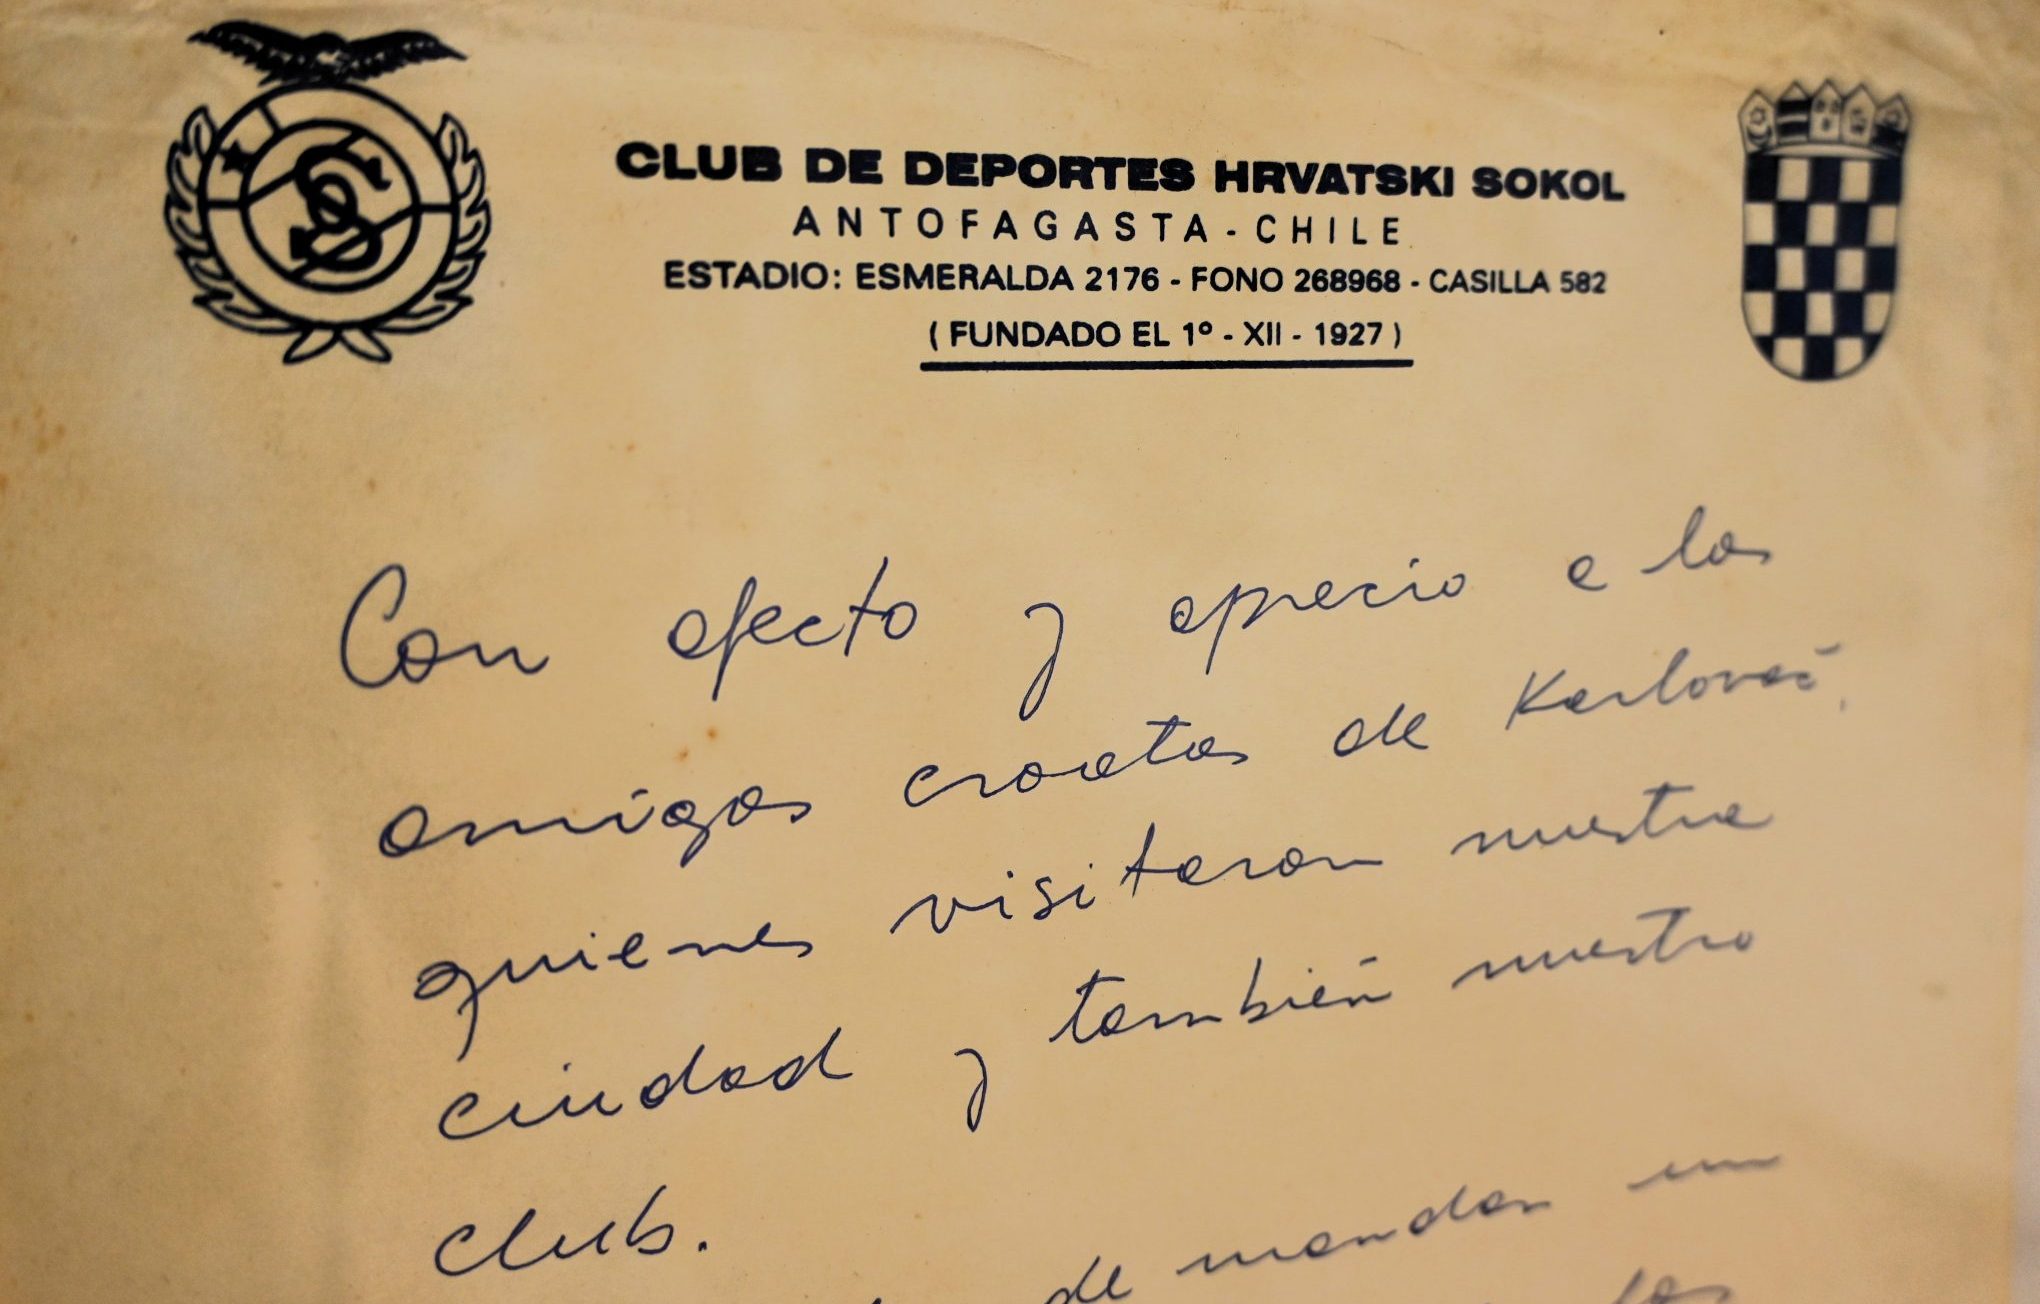 CLUB DE DEPORTES HRVATSKI SOKOL
ANTOFAGASTA - CHILE
ESTADIO: ESMERALDA 2176 - FONO 268968 - CASILLA 582
( FUNDADO EL 1º - XII - 1927 )
Con afecto y aprecio a los
amigos croatas de Karlovač,
quienes visitaron nuestra
ciudad y también nuestro
club.
de mandar un